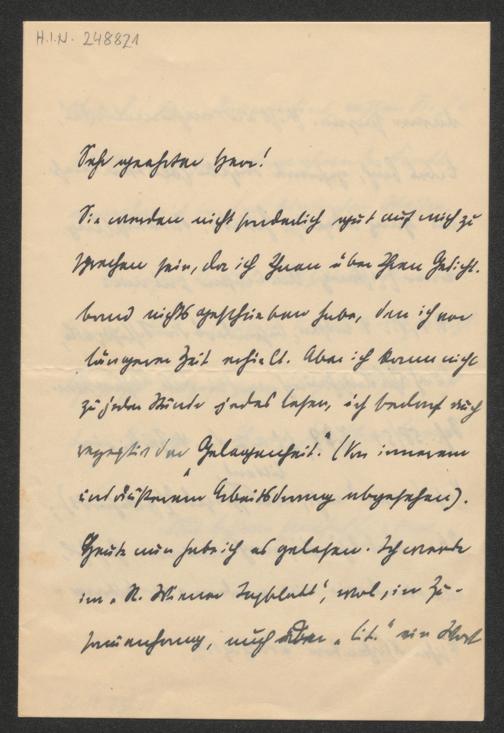 H.I.N. 248821
Sehr geehrter Herr!
Sie werden nicht sonderlich gut auf mich zu
sprechen sein, da ich Ihnen über Ihren Gedicht-
band nichts geschrieben habe, den ich vor
längerer Zeit erhielt. Aber ich kann nicht
zu jeder Stunde jedes lesen, ich bedarf auch
rezeptiv der „Gelegenheit." (Von innerem
und äußerem Arbeitsdrang abgesehen).
Heute nun habe ich es gelesen. Ich werde
im „N. Wiener Tagblatt", wol, im Zu-
sammenhang, auch über „Lit." ein Wort